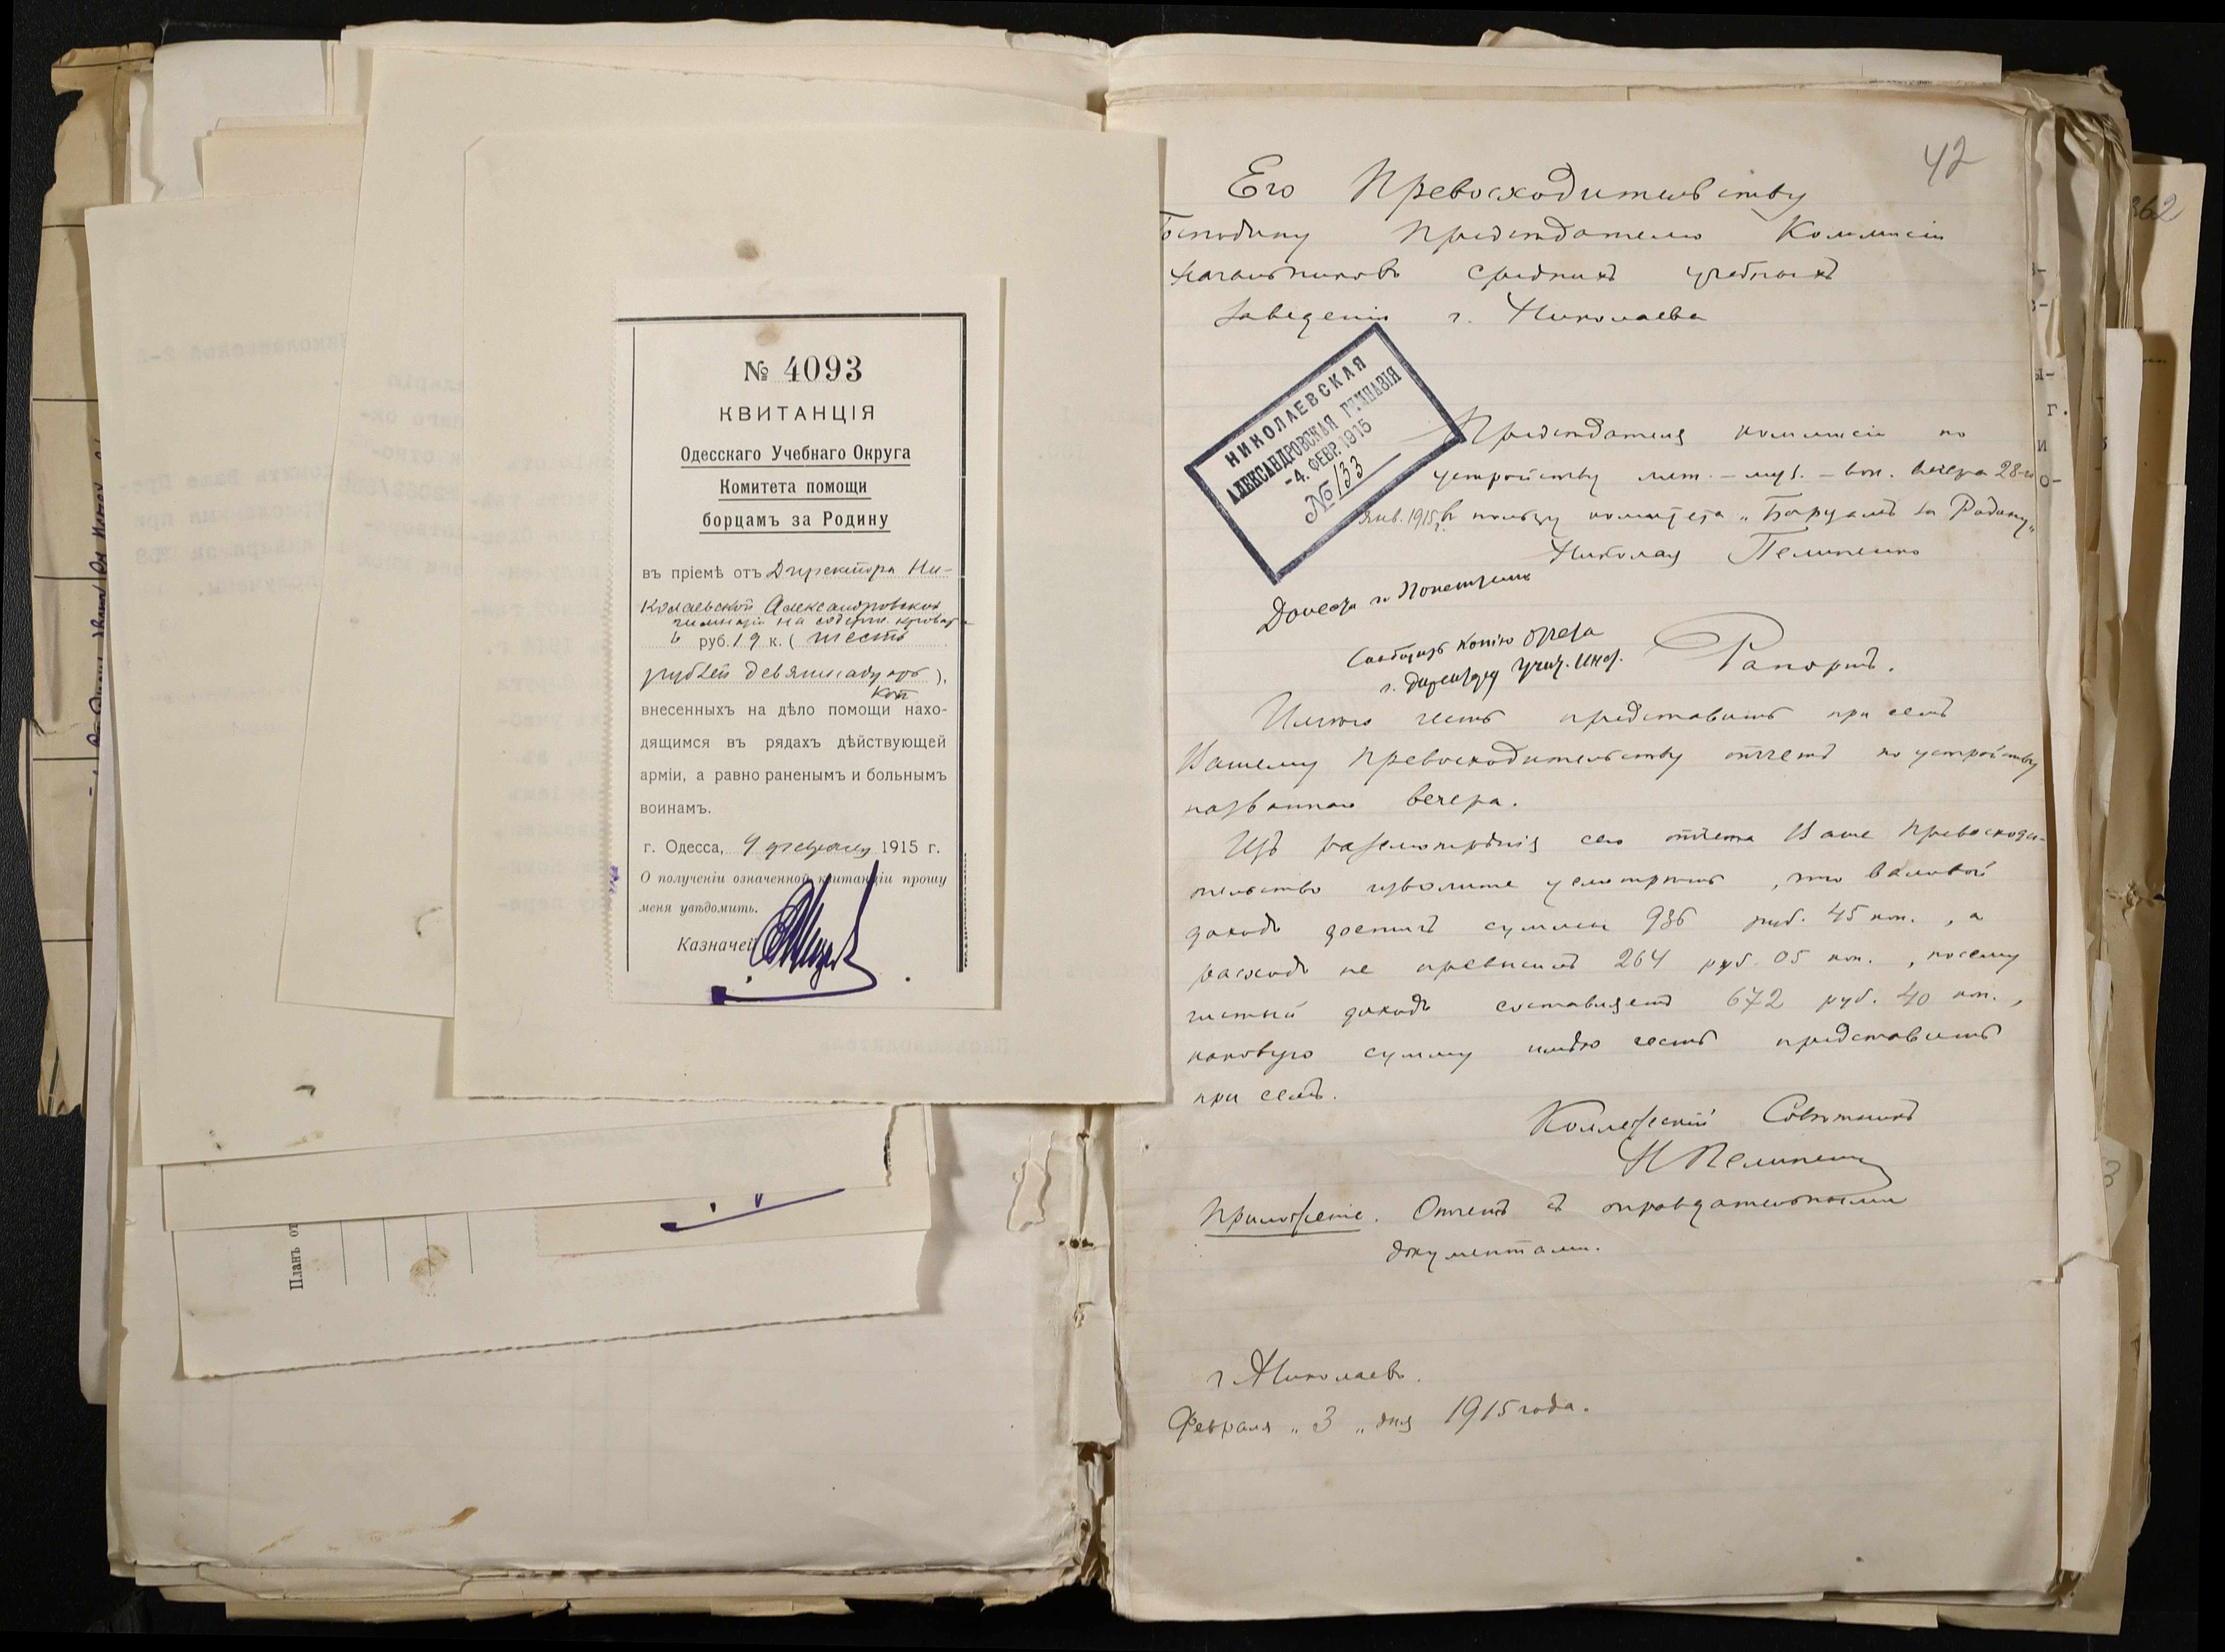 № 4093
КВИТАНЦІЯ
Одесскаго Учебнаго Округа
Комитета помощи
борцамъ за Родину
въ пріемѣ отъ Директора Ни-
колаевской Александровской
гимназіи на содерж. кровати
6 руб. 19 к. (шесть
рублей девятнадцать),
коп
внесенныхъ на дѣло помощи нахо-
дящимся въ рядахъ дѣйствующей
арміи, а равно раненымъ и больнымъ
воинамъ.
г. Одесса, 9 февраля 1915 г.
О полученіи означенной квитанціи прошу
меня увѣдомить.
Казначей
Планъ от
42
Его Превосходительству
Господину Предсѣдателю Коммисіи
Начальниковъ среднихъ учебныхъ
заведеній г. Николаева
НИКОЛАЕВСКАЯ
АЛЕКСАНДРОВСКАЯ ГИМНАЗІЯ
-4. ФЕВР. 1915
№ 133
Предсѣдателя коммисіи по
устройству лит.-муз.-вок. вечера 28-го
янв. 1915 г. въ пользу комитета "Борцамъ за Родину"
Николая Пелипенко
Сообщить копію
г. Директору Учит. Инст.
Рапортъ.
Имѣю честь представить при семъ
Вашему Превосходительству отчетъ по устройству
названнаго вечера.
Изъ разсмотрѣнія сего отчета Ваше Превосходи-
тельство изволите усмотрѣть, что валовой
доходъ достигъ суммы 936 руб. 45 коп., а
расходъ не превысилъ 264 руб. 05 коп., посему
чистый доходъ составляетъ 672 руб. 40 коп.,
каковую сумму имѣю честь представить
при семъ.
Коллежскій Совѣтникъ
Н Пелипенко
Приложеніе. Отчетъ съ оправдательными
документами.
г. Николаевъ.
Февраля "3" дня 1915 года.
362